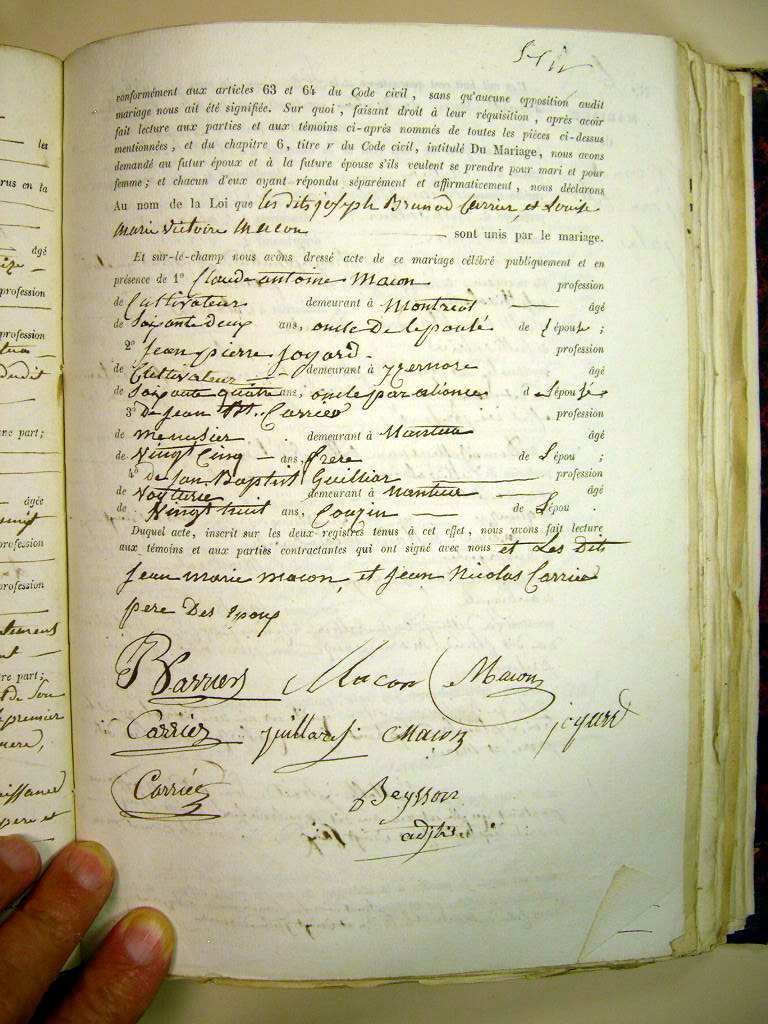 conformément aux articles 63 et 64 du Code civil, sans qu'aucune opposition audit
mariage nous ait été signifiée. Sur quoi, faisant droit à leur réquisition, après avoir
fait lecture aux parties et aux témoins ci-après nommés de toutes les pièces ci-dessus
mentionnées, et du chapitre 6, titre v du Code civil, intitulé Du Mariage, nous avons
demandé au futur époux et à la future épouse s'ils veulent se prendre pour mari et pour
femme; et chacun d'eux ayant répondu séparément et affirmativement, nous déclarons
Au nom de la Loi que les dits joseph Brunod Carrier, et Louise
Marie Victoire Macon sont unis par le mariage.
Et sur-le-champ nous avons dressé acte de ce mariage célébré publiquement et en
présence de 1° Claude antoine Macon profession
de Cultivateur demeurant à Montreal âgé
de Soixante deux ans, oncle De lepouse de l'épouse;
2° Jean pierre Joyard profession
de Cultivateur demeurant à âgé
de Soixante quatre ans, oncle par aliance d l'épouse
3° De jean Bt. Carrier profession
de menusier demeurant à Nantua âgé
de Vingt Cinq ans, frere de l'épou;
4° de Jan Baptist Guilliar profession
de Voiturie demeurant à nantua âgé
de Vingt huit ans, Couzin de l'épou.
Duquel acte, inscrit sur les deux registres tenus à cet effet, nous avons fait lecture
aux témoins et aux parties contractantes qui ont signé avec nous et Les Dits
jean marie macon, et jean Nicolas Carrier
pere Des Epoux
BCarrier Macon Macon
Carrier juillard Macon joyard
Carrier Beysson
adjt
les
rus en la
âgé
profession
profession
dudit
ne part;
âgée
profession
profession
re part;
de son
premier
pere et